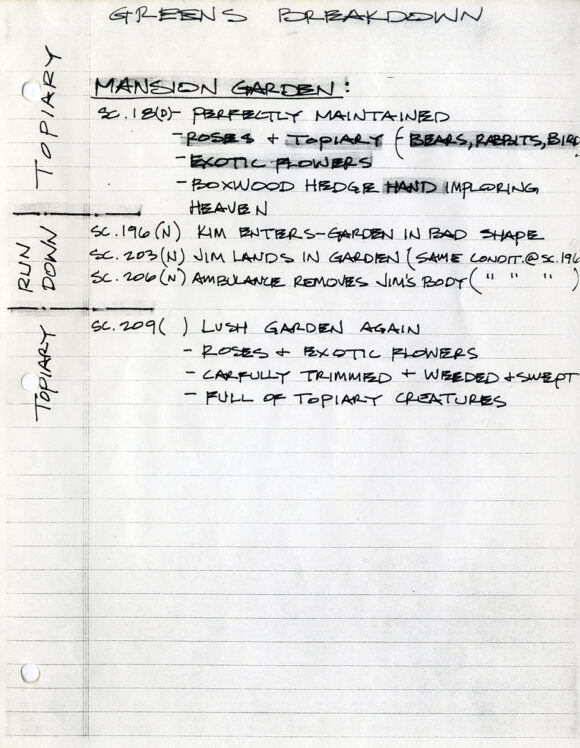 GREENS BREAKDOWN
TOPIARY
MANSION GARDEN:
SC. 18(D)- PERFECTLY MAINTAINED
- ROSES + TOPIARY (BEARS, RABBITS, BIRD
- EXOTIC FLOWERS
- BOXWOOD HEDGE HAND IMPLORING
HEAVEN
RUN DOWN
SC. 196 (N) KIM ENTERS-GARDEN IN BAD SHAPE
SC. 203 (N) JIM LANDS IN GARDEN (SAME CONDIT. @ SC. 196
SC. 206 (N) AMBULANCE REMOVES JIM'S BODY (" " " )
TOPIARY
SC. 209 ( ) LUSH GARDEN AGAIN
- ROSES + EXOTIC FLOWERS
- CARFULLY TRIMMED + WEEDED + SWEPT
- FULL OF TOPIARY CREATURES